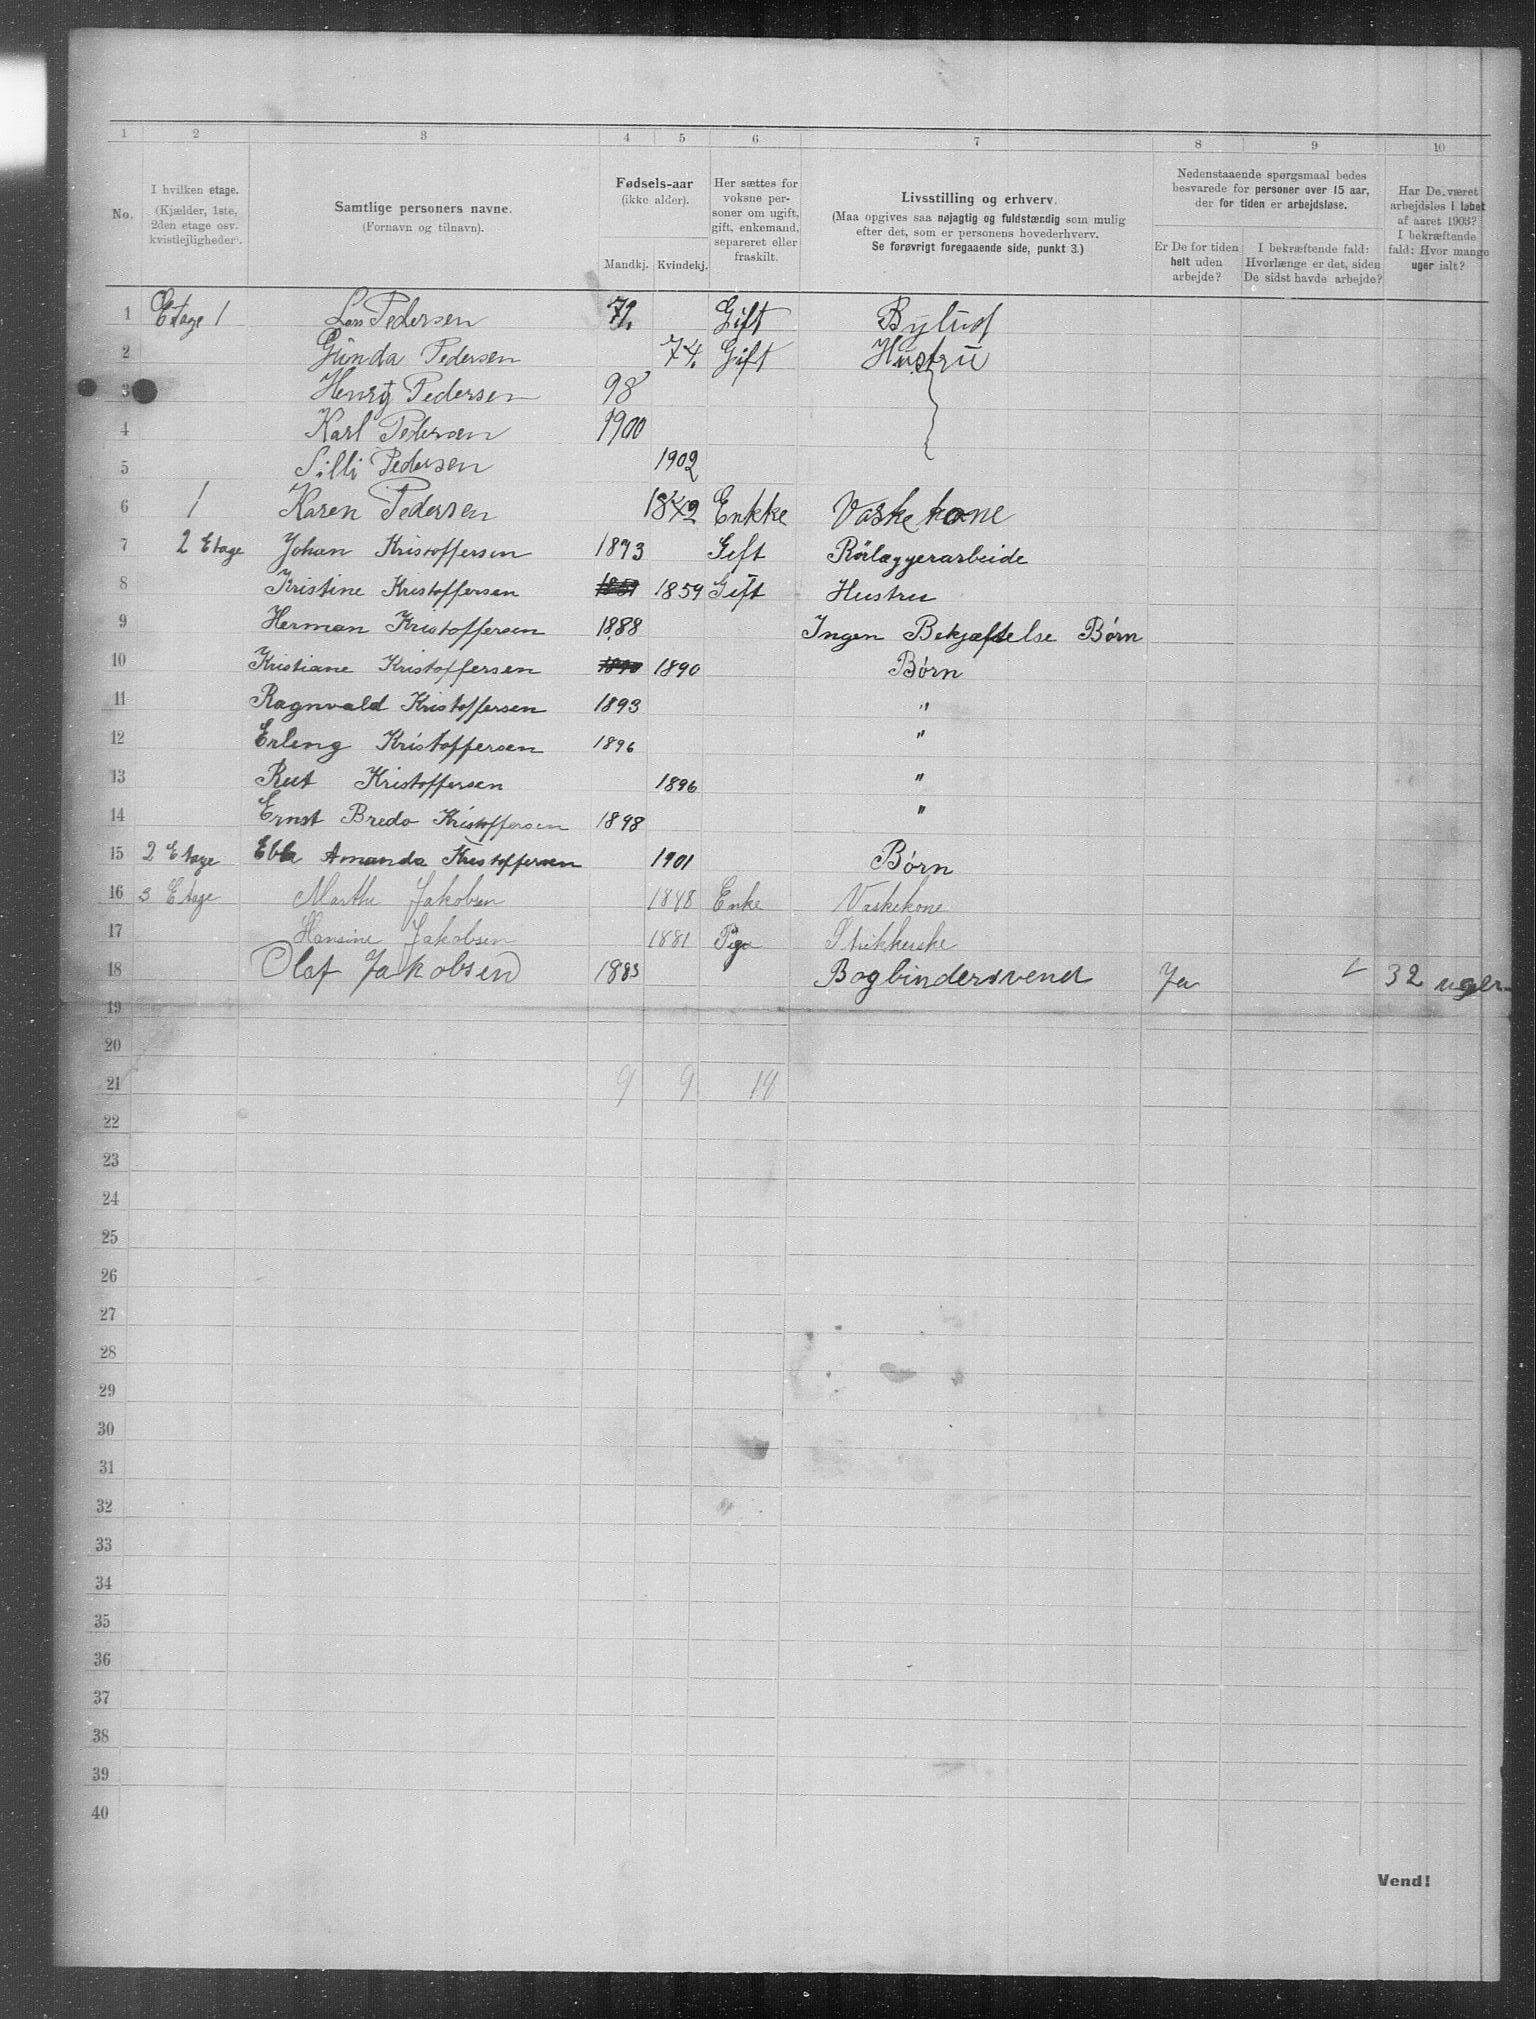 1 2 3 4 5 6 7 8 9 10
No.
I hvilken etage.
(Kjælder, 1ste, 2den etage osv. kvistlejligheder).
Samtlige personers navne.
(Fornavn og tilnavn).
Fødsels-aar
(ikke alder).
Mandkj. Kvindekj.
Her sættes for voksne personer om ugift, gift, enkemand, separeret eller fraskilt.
Livsstilling og erhverv.
(Maa opgives saa nøjagtig og fuldstændig som mulig efter det, som er personens hovederhverv.
Se forøvrigt foregaaende side, punkt 3.)
Nedenstaaende spørgsmaal bedes besvarede for personer over 15 aar, der for tiden er arbejdsløse.
Er De for tiden helt uden arbejde?
I bekræftende fald: Hvorlænge er det, siden De sidst havde arbejde?
Har De været arbejdsløs i løbet af aaret 1903? I bekræftende fald: Hvor mange uger ialt?
1 Etage 1 Lars Pedersen Gift Bybud
2 Gunda Pedersen 74. Gift Hustru
3 Henry Pedersen 98
4 Karl Pedersen 1900
5 Silli Pedersen 1902
6 1 Karen Pedersen 1842 Enkke Vaskekone
7 2 Etage Johan Kristoffersen 1873 Gift Rörlæggerarbeide
8 Kristine Kristoffersen 1859 Gift Hustru
9 Herman Kristoffersen 1888 Ingen Bekjæftelse Børn
10 Kristiane Kristoffersen 1890 Børn
11 Ragnvald Kristoffersen 1893 "
12 Erling Kristoffersen 1896 "
13 Rut Kristoffersen 1896 "
14 Ernst Bredo Kristoffersen 1898 "
15 2 Etage Ebba Amanda Kristoffersen 1901 Børn
16 3 Etage Marthe Jakobsen 1848 Enke Vaskekone
17 Hansine Jakobsen 1881 Pige Strikkerske
18 Olaf Jakobsen 1883 Bogbindersvend Ja 32 uger
19
20
21 9 9 14
22
23
24
25
26
27
28
29
30
31
32
33
34
35
36
37
38
39
40
Vend!